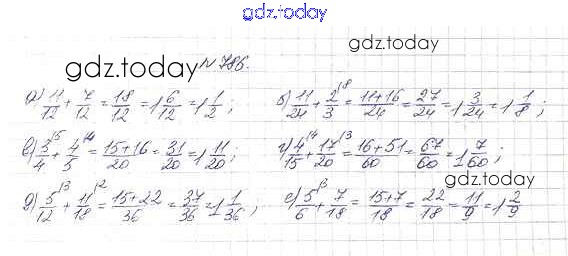 gdz.today
gdz.today
gdz.today № 786.
а) 11/12 + 7/12 = 18/12 = 1 6/12 = 1 1/2 ; б) 11/24 + 2/3^\8 = 11+16/24 = 27/24 = 1 3/24 = 1 1/8 ;
в) 3/4^\5 + 4/5^\4 = 15+16/20 = 31/20 = 1 11/20 ; г) 4/15^\4 + 17/20^\3 = 16+51/60 = 67/60 = 1 7/60 ;
gdz.today
д) 5/12^\3 + 11/18^\2 = 15+22/36 = 37/36 = 1 1/36 ; е) 5/6^\3 + 7/18 = 15+7/18 = 22/18 = 11/9 = 1 2/9